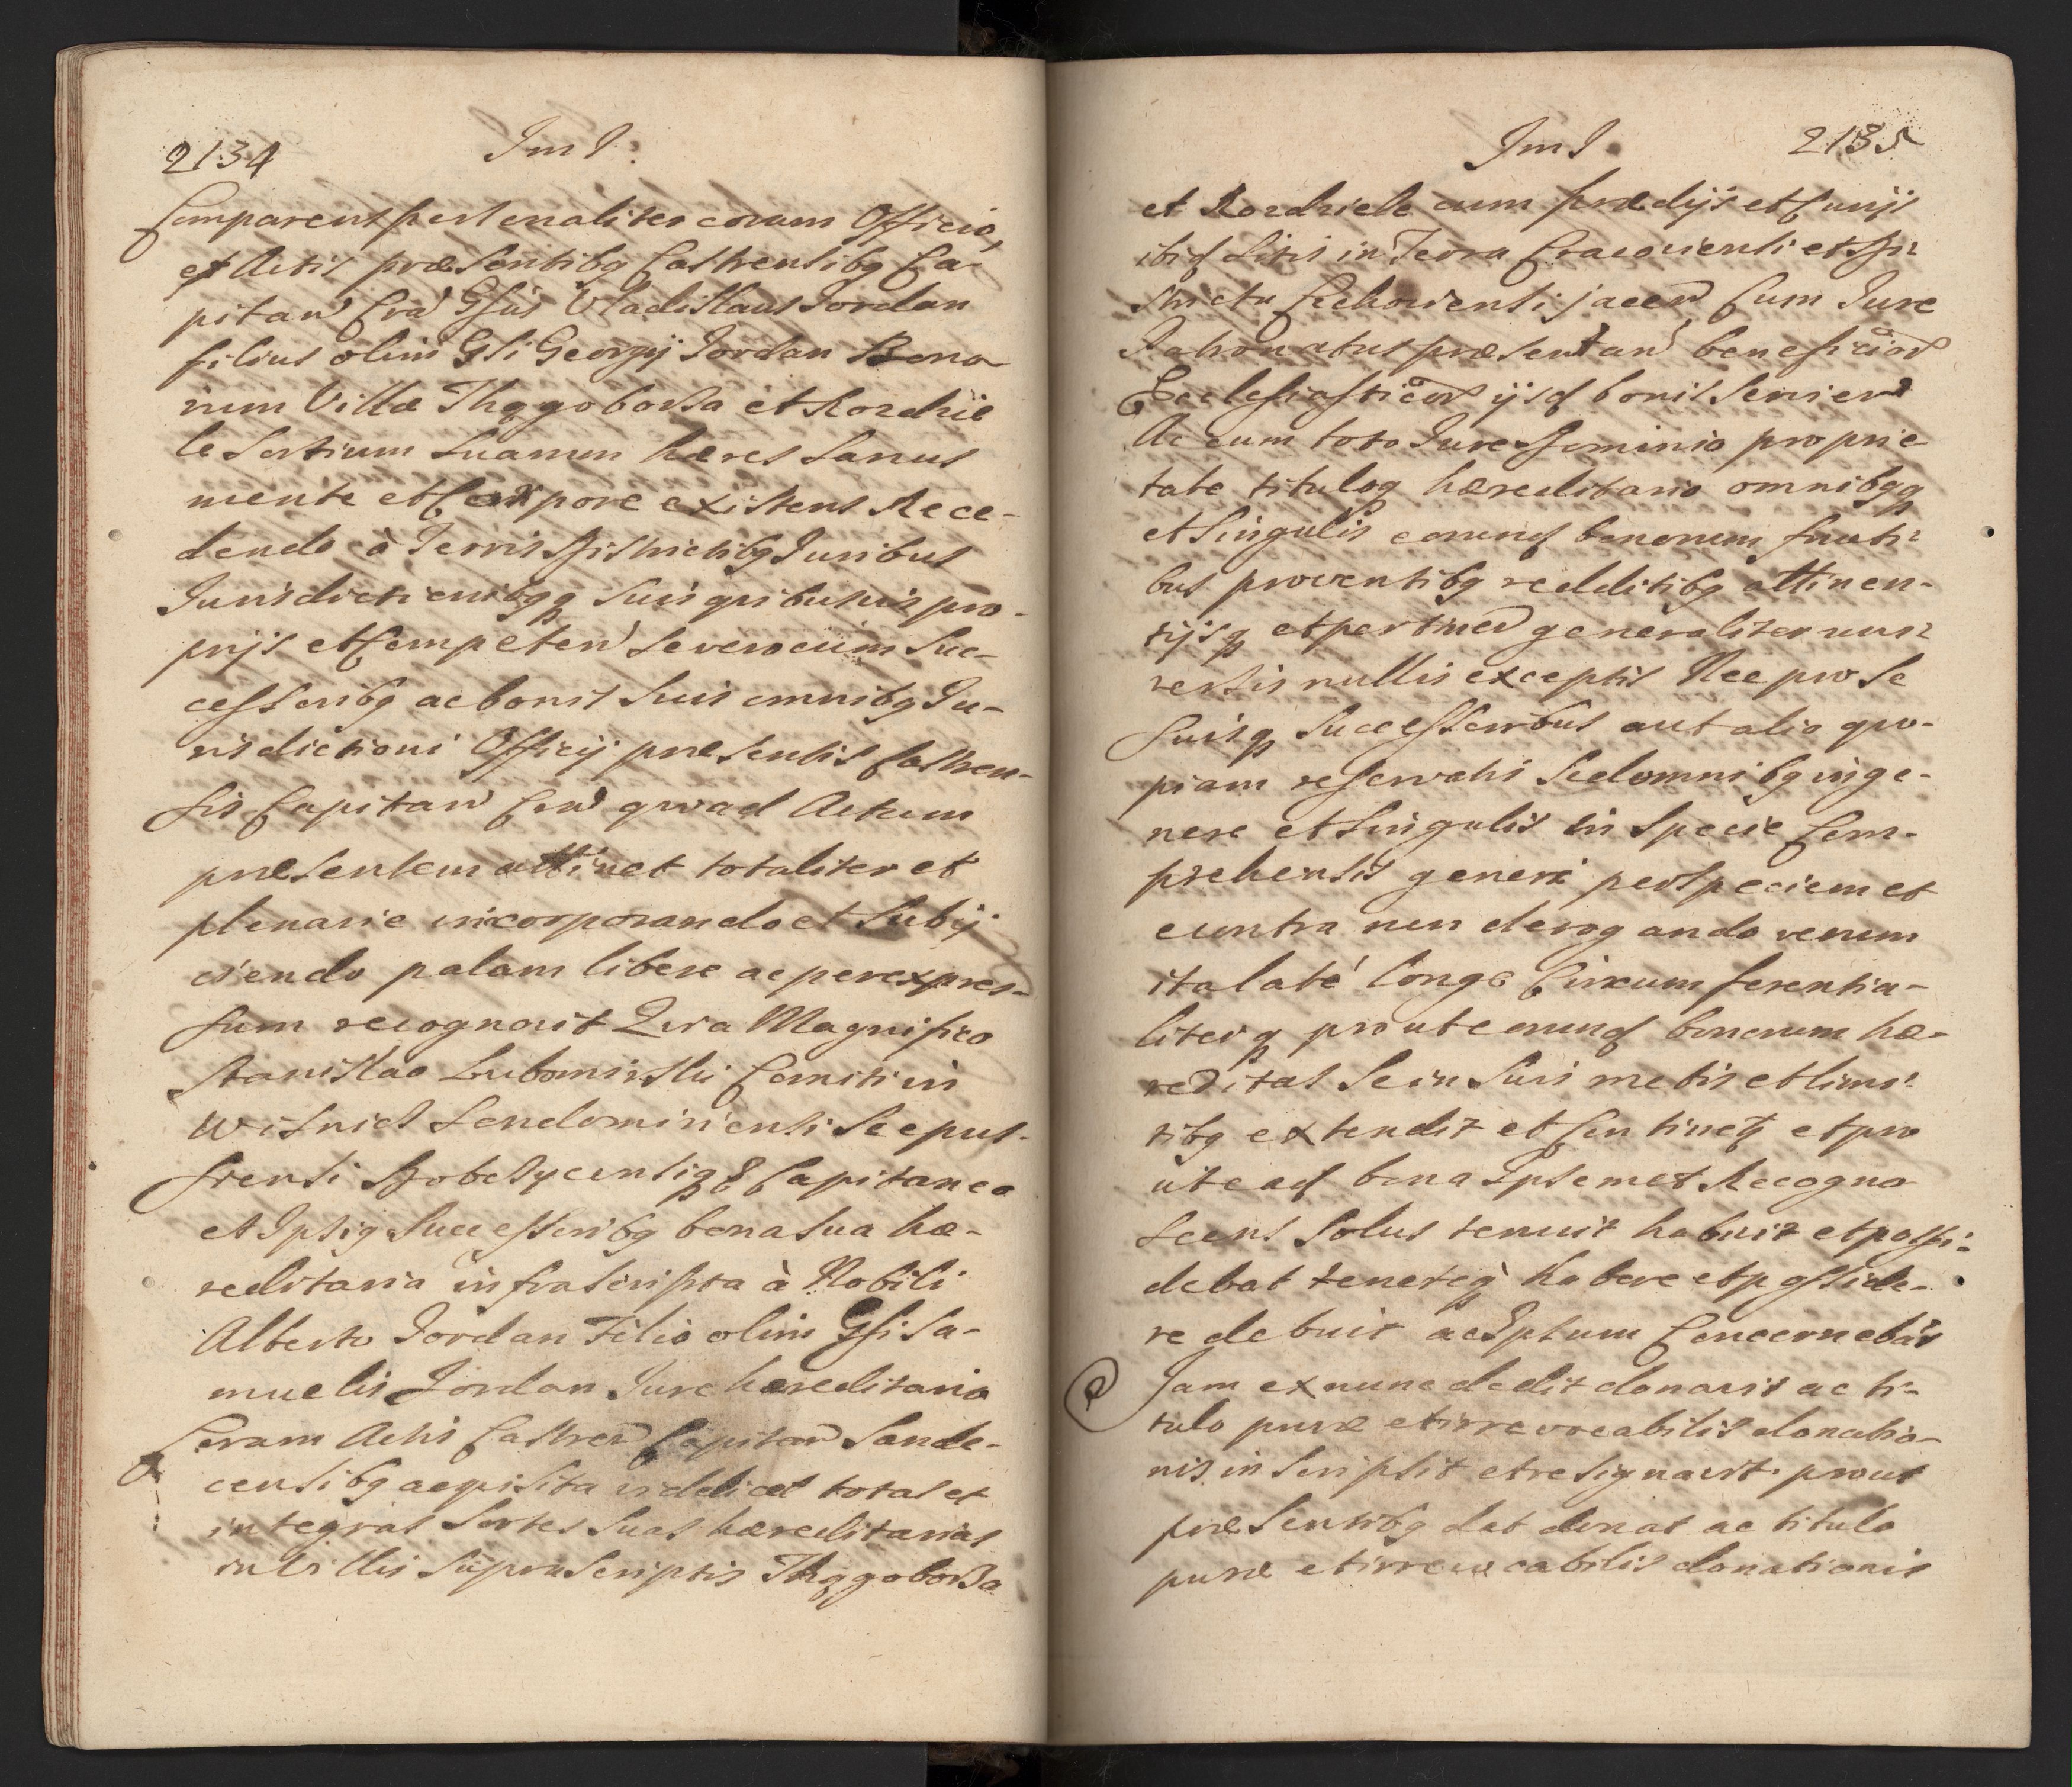 2134
JmJ.
Comparens personaliter coram Officio,
et Actis præsentibq Castrensibq Ca-
pitan Cra Gsus Vladislaus Jordan
filius olim Gsi Georgij Jordan Bono
rum Villæ Thggoborza et Rozdzie
le Sortium suarum hæres Sanus
mente et Corpore existens Rece-
dendo à Terris Districtibq Juribus
Jurisdictionibqq suis quibusvis pro-
prijs et Competen se vero cum suc-
cessoribq ac bonis suis omnibq Ju-
risdictioni Officij præsentis Castren-
sis Capitan Cra quoad Actum
præsentem attinet totaliter et
plenarie incorporando et Subij-
ciendo palam libere ac per expres-
sum recognovit Quia Magnifico
Stanislao Lubomirski Comiti in
Wisnicz Sendomiriensi Scepus-
siensi Dobczycensiqq Capitaneo
et Ipsiq Successoribq bona sua hæ-
reditaria infrascripta à Nobili
Alberto Jordan Filio olim Gsi Sa-
muelis Jordan Jure hæreditario
Coram Actis Castren Capitan Sande-
censibq acquisita videlicet totas et
integras Sortes Suas hæreditarias
in Villis supra Scriptis Thggoborza
JmJ.
2135
et Rozdziele cum prædijs et Curijs
ibiq Sitis in Terra Cracoviensi et Di-
strictu Czchoviensi jacen Cum Jure
Patronatus præsentan beneficior
Ecclesiasticor ijsq bonis Servien
Ac cum toto Jure Dominio proprie
tate tituloq hæreditario omnibqq
et Singulis eorunq bonorum fructi-
bus proventibq redditibq attinen-
tijsq et pertinen generaliter uni-
versis nullis exceptis Nec pro Se
suisq Successoribus aut alio quo-
piam reservatis Sed omnibq in ge-
nere et Singulis in Specie Com-
prehensis generi per Speciem et
e contra non derogando verum
ita laté longe Circumferentia-
literq prout eorunq bonorum hæ-
reditas Se in Suis metis et limi-
tibq extendit et Continetq et pro
ut eaq bona Ipsemet Recogno
scens Solus tenuit habuit et possi-
debat tenereq habere et posside-
re debuit ac Ipsum Concernebat
Jam ex nunc dedit donavit ac ti-
tulo puræ et irrevocabilis donatio-
nis inscripsit et resignavit prout
præsentibq dat donat ac titulo
puræ et irrevocabilis donationis